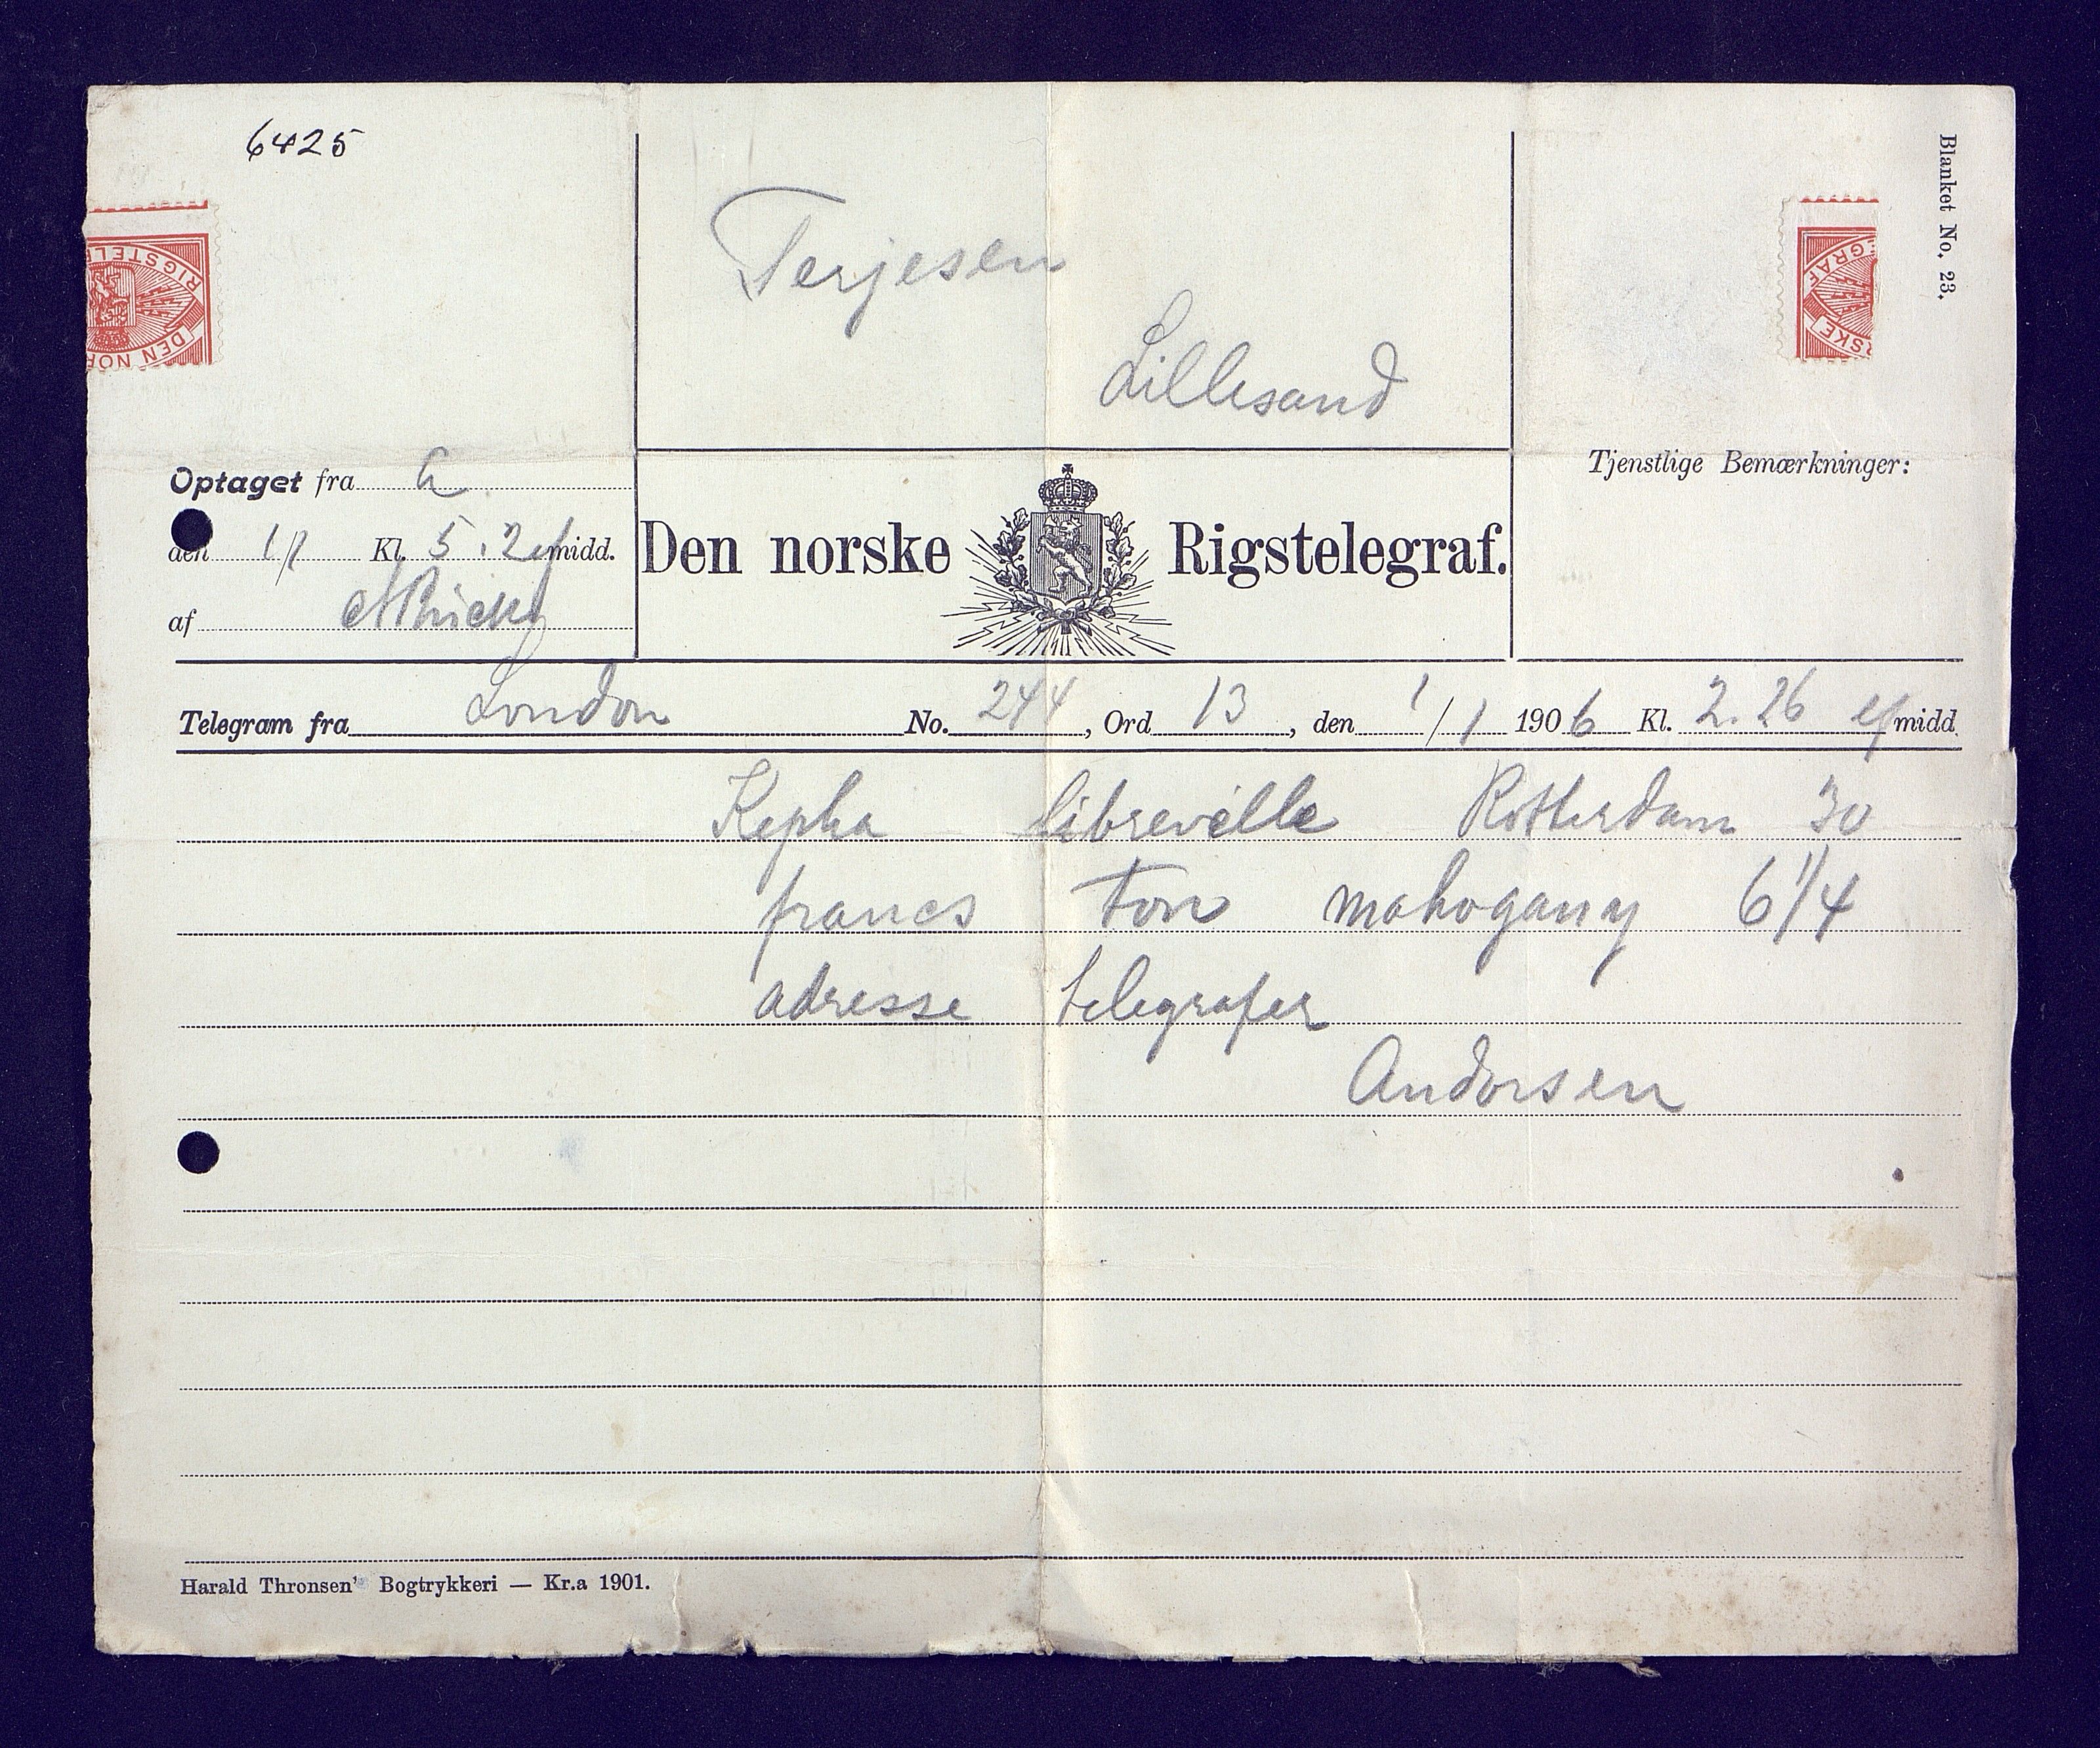 6425
Blanket No. 23.
RIGSTEL
DEN NOR
GRAF
RSKE
Terjesen
Lillesand
Optaget fra A.
den 1/1 Kl. 5.2 efmidd.
af
Den norske Rigstelegraf.
Tjenstlige Bemærkninger:
Telegram fra London No. 244, Ord 13, den 1/1 1906 Kl. 2.26 efmidd.
Kepha libreville Rotterdam 30
francs ton mahogany 6 1/4
adresse telegrafer
Andorsen
Harald Thronsen' Bogtrykkeri — Kr.a 1901.